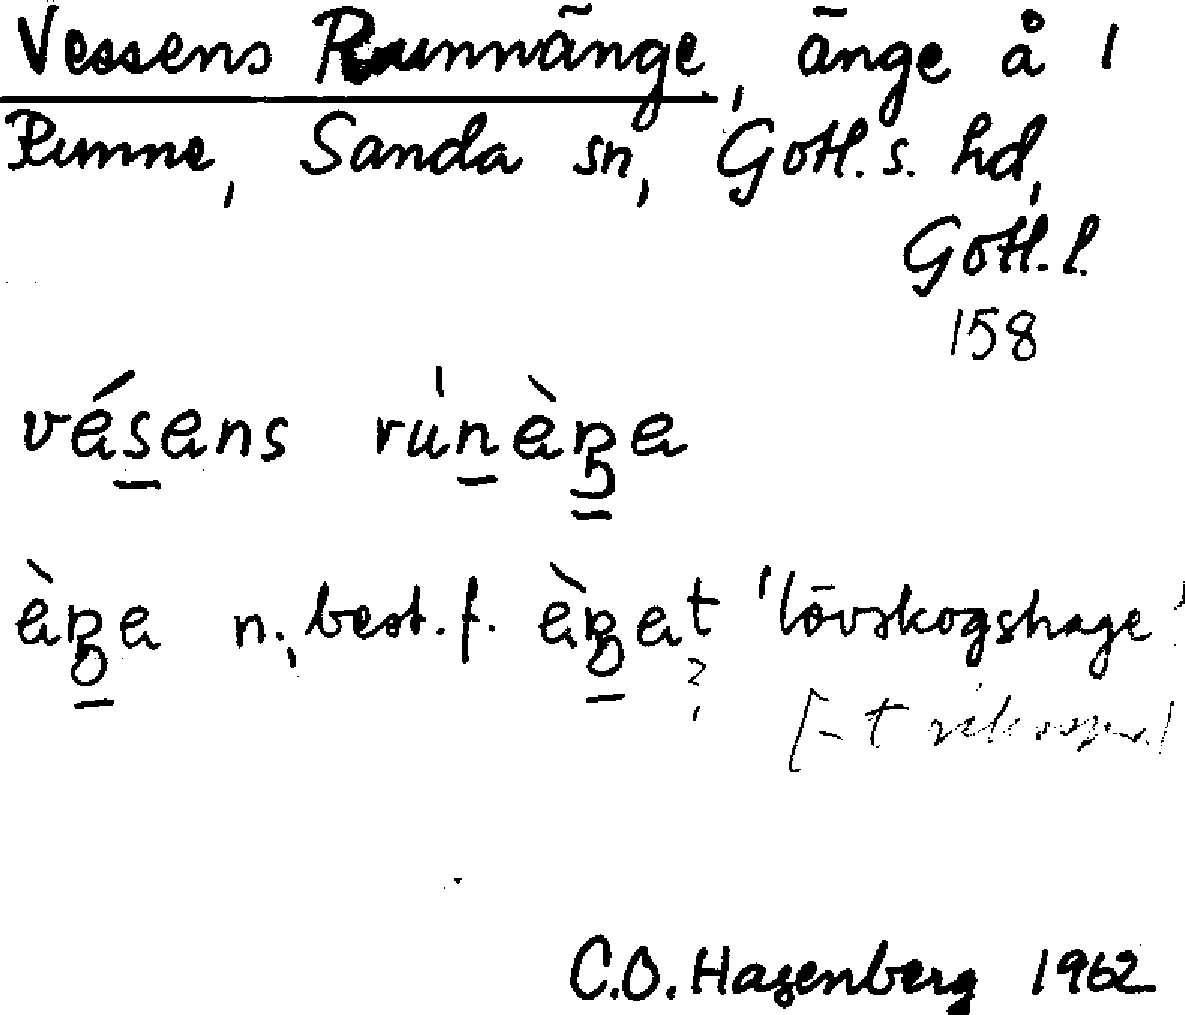 Vessens Runnänge, änge å 1
Runne, Sanda sn, Gotl. s. hd,
Gotl. l.
158
vésens rúnèŋe
èŋe n., best. f. èŋet 'lövskogshage'
?
[-t
C.O. Hagenberg 1962